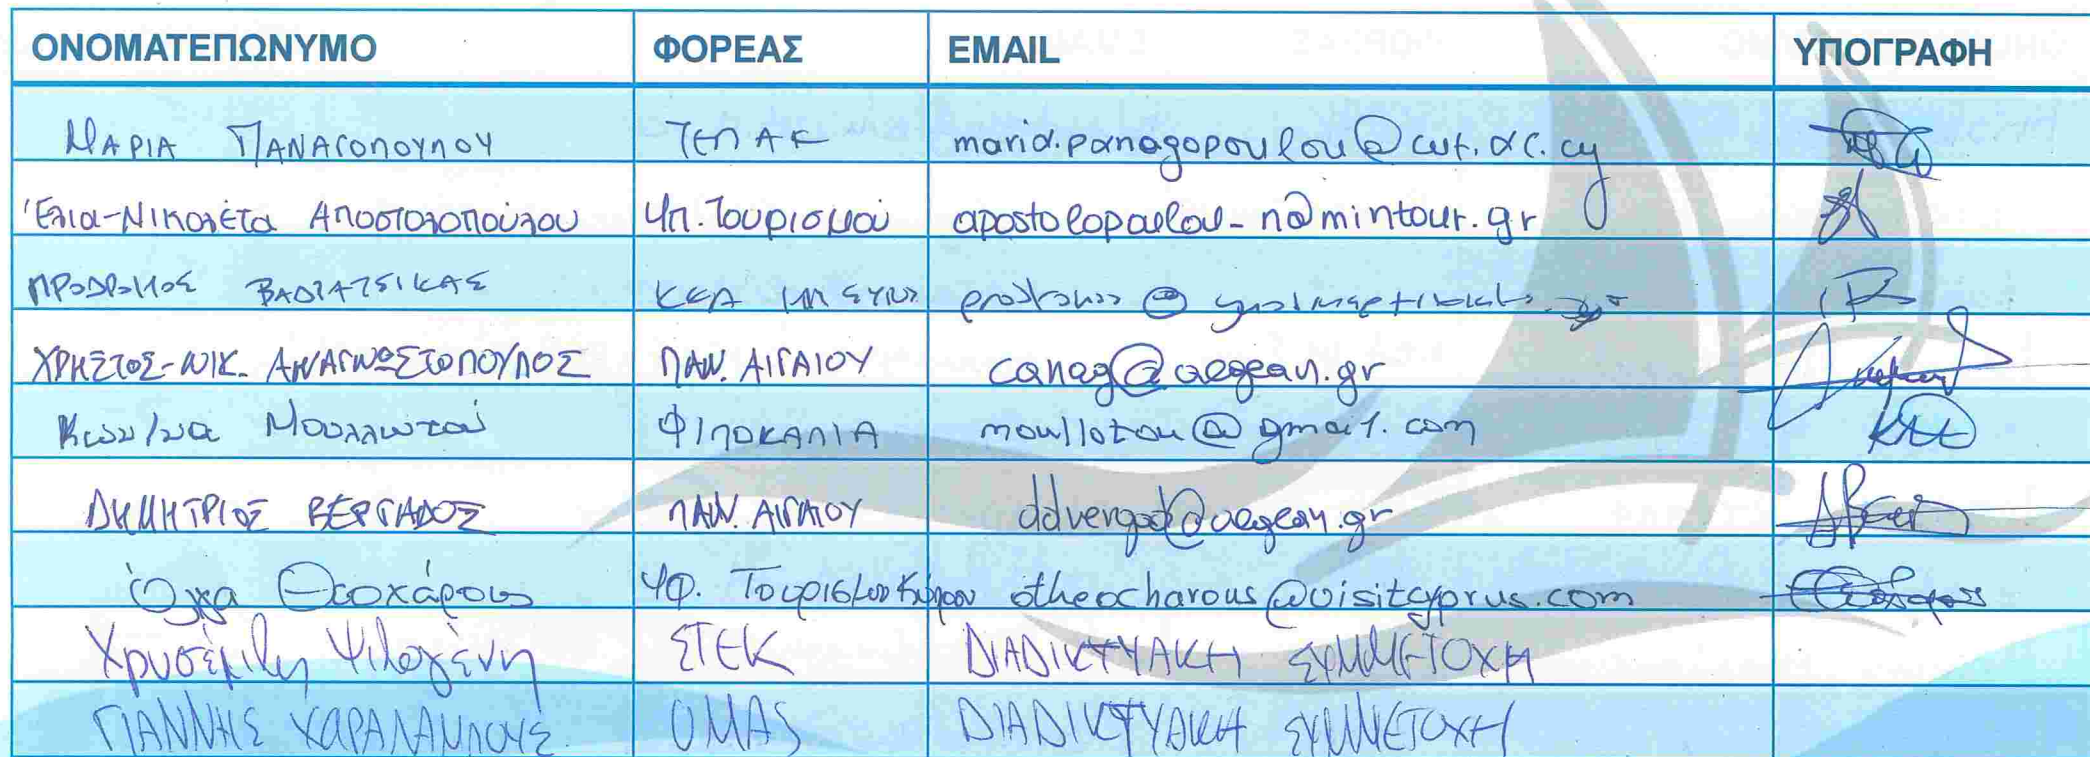 ΟΝΟΜΑΤΕΠΩΝΥΜΟ ΦΟΡΕΑΣ EMAIL ΥΠΟΓΡΑΦΗ
ΜΑΡΙΑ ΠΑΝΑΓΟΠΟΥΛΟΥ ΤΕΠΑΚ maria.panagopoulou@cut.ac.cy
Έλια-Νικολέτα Αποστολοπούλου Υπ. Τουρισμού apostolopoulou-n@mintour.gr
ΠΡΟΔΡΟΜΟΣ ΚΕΑ
ΧΡΗΣΤΟΣ-ΝΙΚ. ΑΝΑΓΝΩΣΤΟΠΟΥΛΟΣ ΠΑΝ. ΑΙΓΑΙΟΥ canag@aegean.gr
Κων/να Μουλλωτού ΦΙΛΟΚΑΛΙΑ moullotou@gmail.com
ΔΗΜΗΤΡΙΟΣ ΒΕΡΓΑΔΟΣ ΠΑΝ. ΑΙΓΑΙΟΥ ddvergad@aegean.gr
Όλγα Θεοχάρους ΥΦ. Τουρισμού Κύπρου otheocharous@visitcyprus.com
Χρυσέμιλη Ψιλογένη ΣΤΕΚ ΔΙΑΔΙΚΤΥΑΚΗ ΣΥΜΜΕΤΟΧΗ
ΓΙΑΝΝΗΣ ΧΑΡΑΛΑΜΠΟΥΣ ΟΜΑS ΔΙΑΔΙΚΤΥΑΚΗ ΣΥΜΜΕΤΟΧΗ